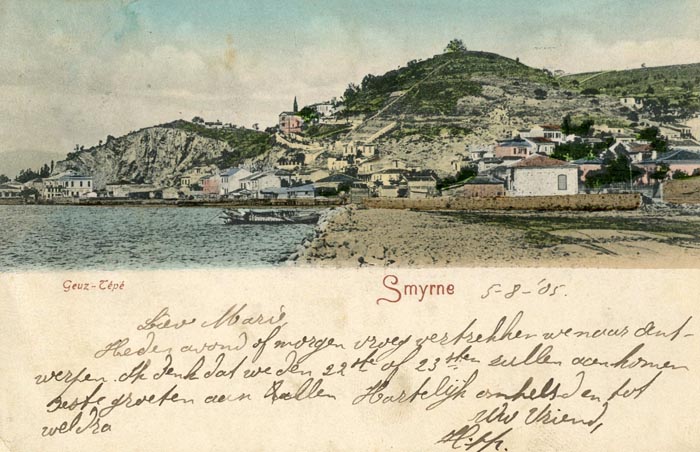 Geuz-Tépé
Smyrne 5-8-'05.
Lieve Marie
Heden avond of morgen vroeg vertrekken we naar Ant-
werpen. Ik denk dat we den 22ste of 23sten zullen aankomen
Beste groeten aan allen Hartelijk omhelsd en tot
weldra Uw Vriend,
Hipp.